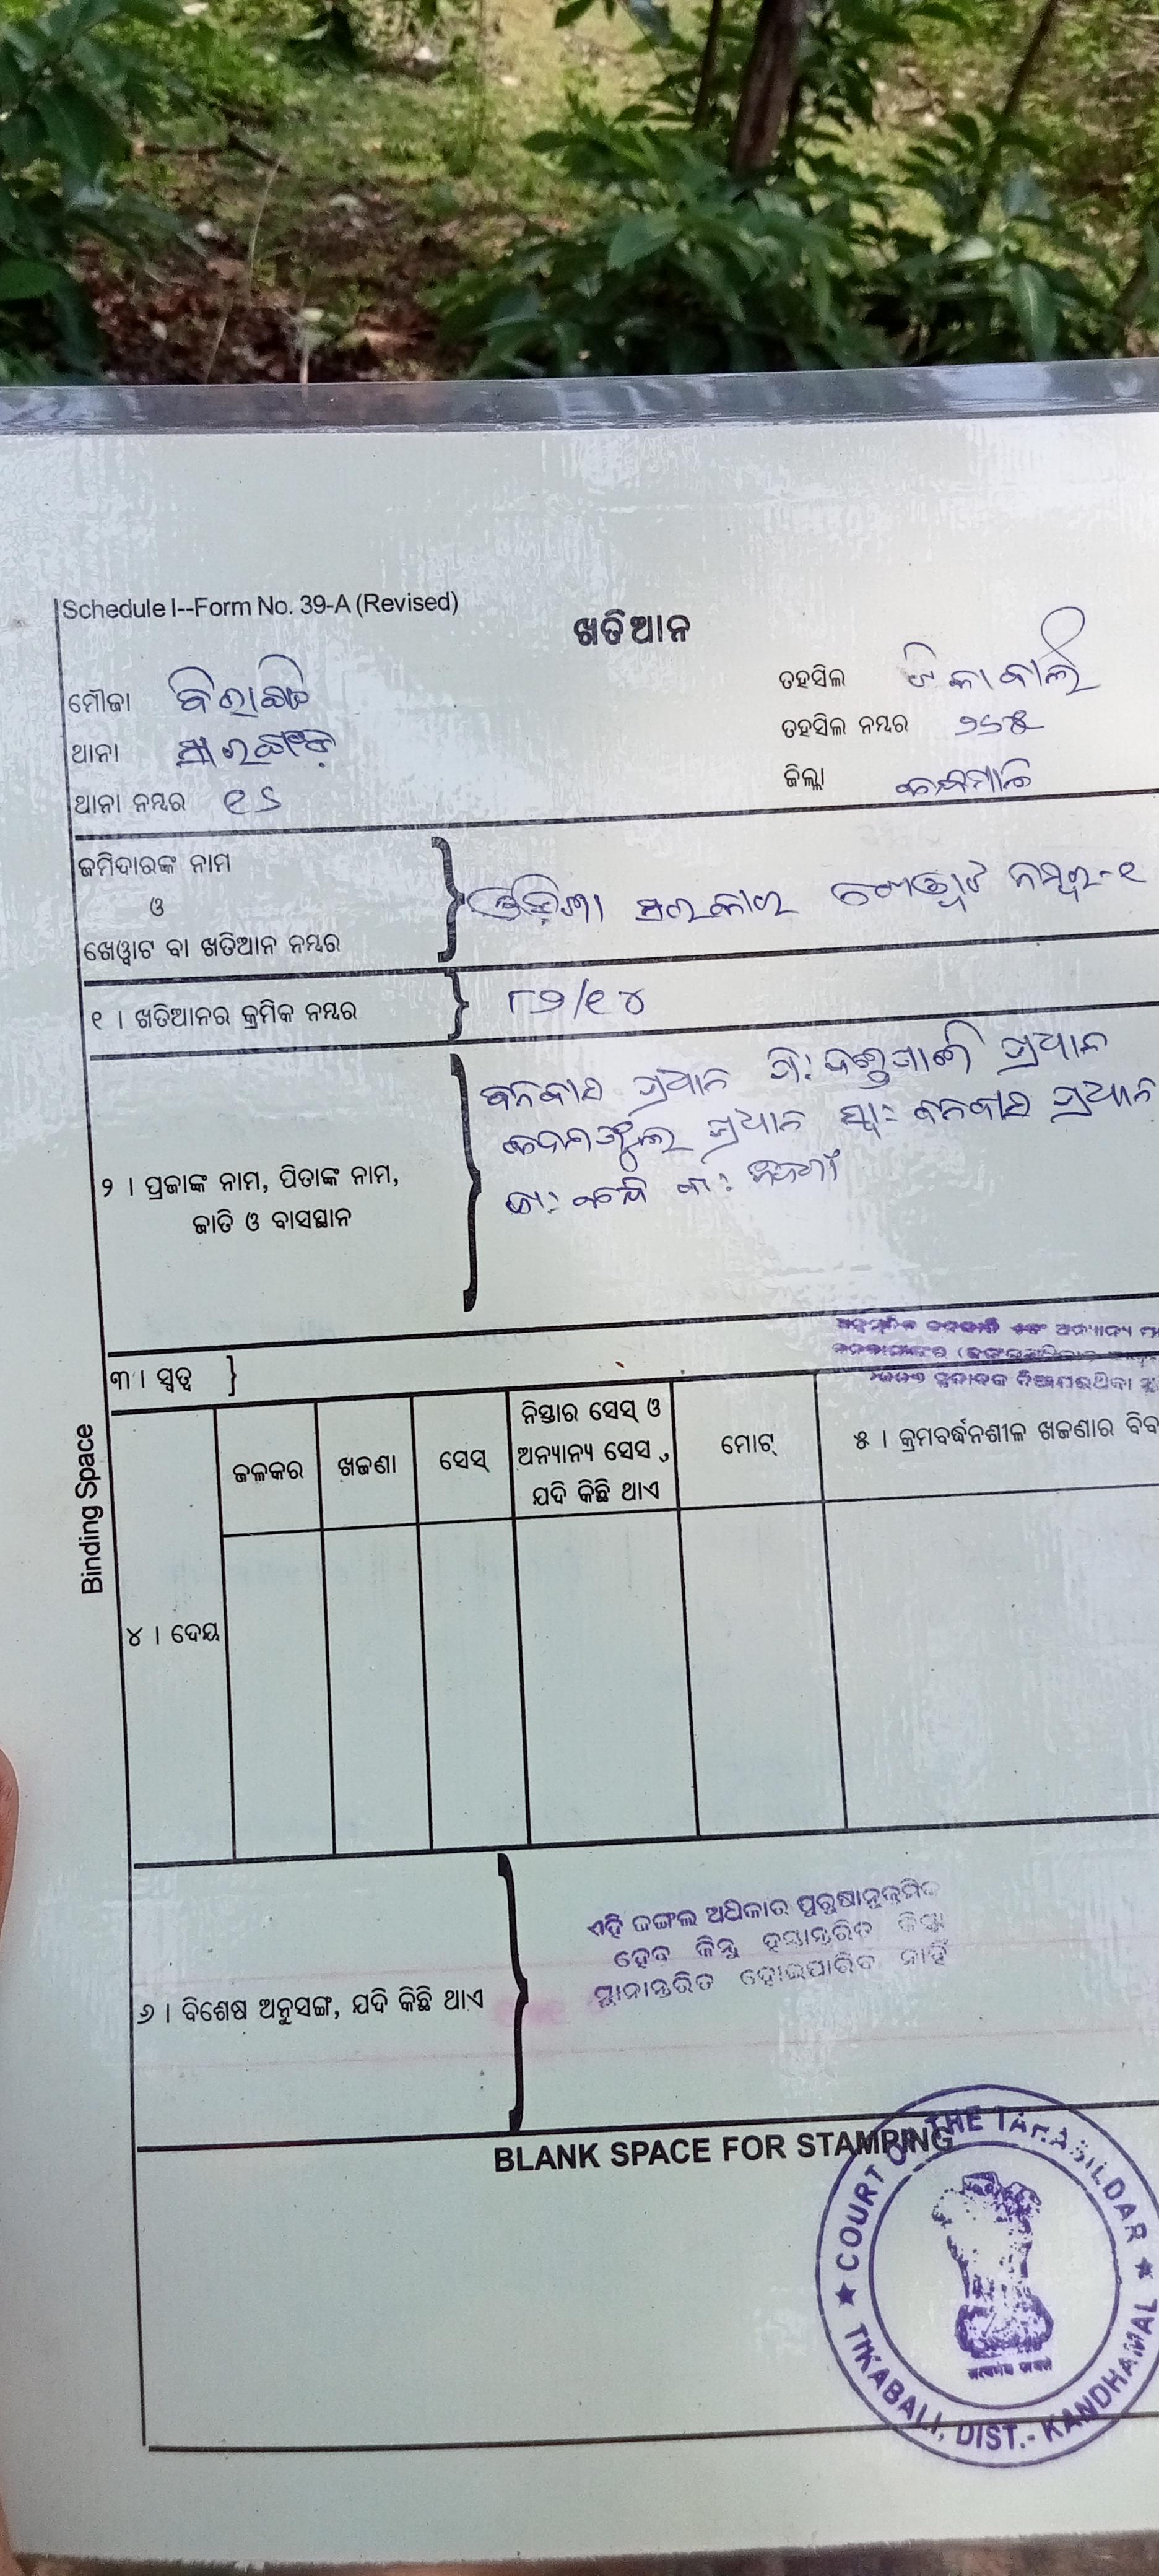 Schedule I--Form No. 39-A (Revised)
ଖତିଆନ
ମୌଜା
ତହସିଲ ଟିକାବାଲି
ଥାନା
ତହସିଲ ନମ୍ବର ୨୬୫
ଥାନା ନମ୍ବର ୧୨
ଜିଲ୍ଲା କନ୍ଧମାଳ
ଜମିଦାରଙ୍କ ନାମ
ଓ
ଖେୱାଟ ବା ଖତିଆନ ନମ୍ବର
ଓଡ଼ିଶା ସରକାର ଖେୱାଟ ନମ୍ବର-୧
୧ । ଖତିଆନର କ୍ରମିକ ନମ୍ବର
୮୨/୧୪
୨ । ପ୍ରଜାଙ୍କ ନାମ, ପିତାଙ୍କ ନାମ,
ଜାତି ଓ ବାସସ୍ଥାନ
ପ୍ରଧାନ ପି: ପ୍ରଧାନ
ପ୍ରଧାନ ସ୍ୱା: ପ୍ରଧାନ
ଜା: କନ୍ଧ ବା:
୩ । ସ୍ୱତ୍ୱ
ଏବଂ ଅନ୍ୟାନ୍ୟ
Binding Space
୪ । ଦେୟ
ଜଳକର
ଖଜଣା
ସେସ୍
ନିସ୍ତାର ସେସ୍ ଓ
ଅନ୍ୟାନ୍ୟ ସେସ,
ଯଦି କିଛି ଥାଏ
ମୋଟ୍
୫ । କ୍ରମବର୍ଦ୍ଧନଶୀଳ ଖଜଣାର ବିବ
୬ । ବିଶେଷ ଅନୁସଙ୍ଗ, ଯଦି କିଛି ଥାଏ
ଏହି ଜଙ୍ଗଲ ଅଧିକାର ପୁରୁଷାନୁକ୍ରମିକ
ହେବ କିନ୍ତୁ ହସ୍ତାନ୍ତରିତ କିମ୍ବା
ସ୍ଥାନାନ୍ତରିତ ହୋଇପାରିବ ନାହିଁ
BLANK SPACE FOR STAMPING
COURT OF THE TAHASILDAR
TIKABALI, DIST.- KANDHAMAL
सत्यमेव जयते